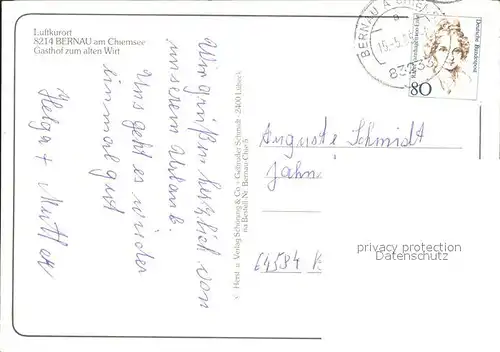 Luftkurort
8214 BERNAU am Chiemsee
Gasthof zum alten Wirt
Wir grüßen herzlich von
unserem Urlaub.
Uns geht es wieder
einmal gut
Helga + Mutter
Herst. u. Verlag Schöning & Co · Gebrüder Schmidt · 2400 Lübeck
BERNAU A CHIEMSEE
83233
Deutsche Bundespost
80
Auguste Schmidt
Jahn
64584
privacy protection
Datenschutz